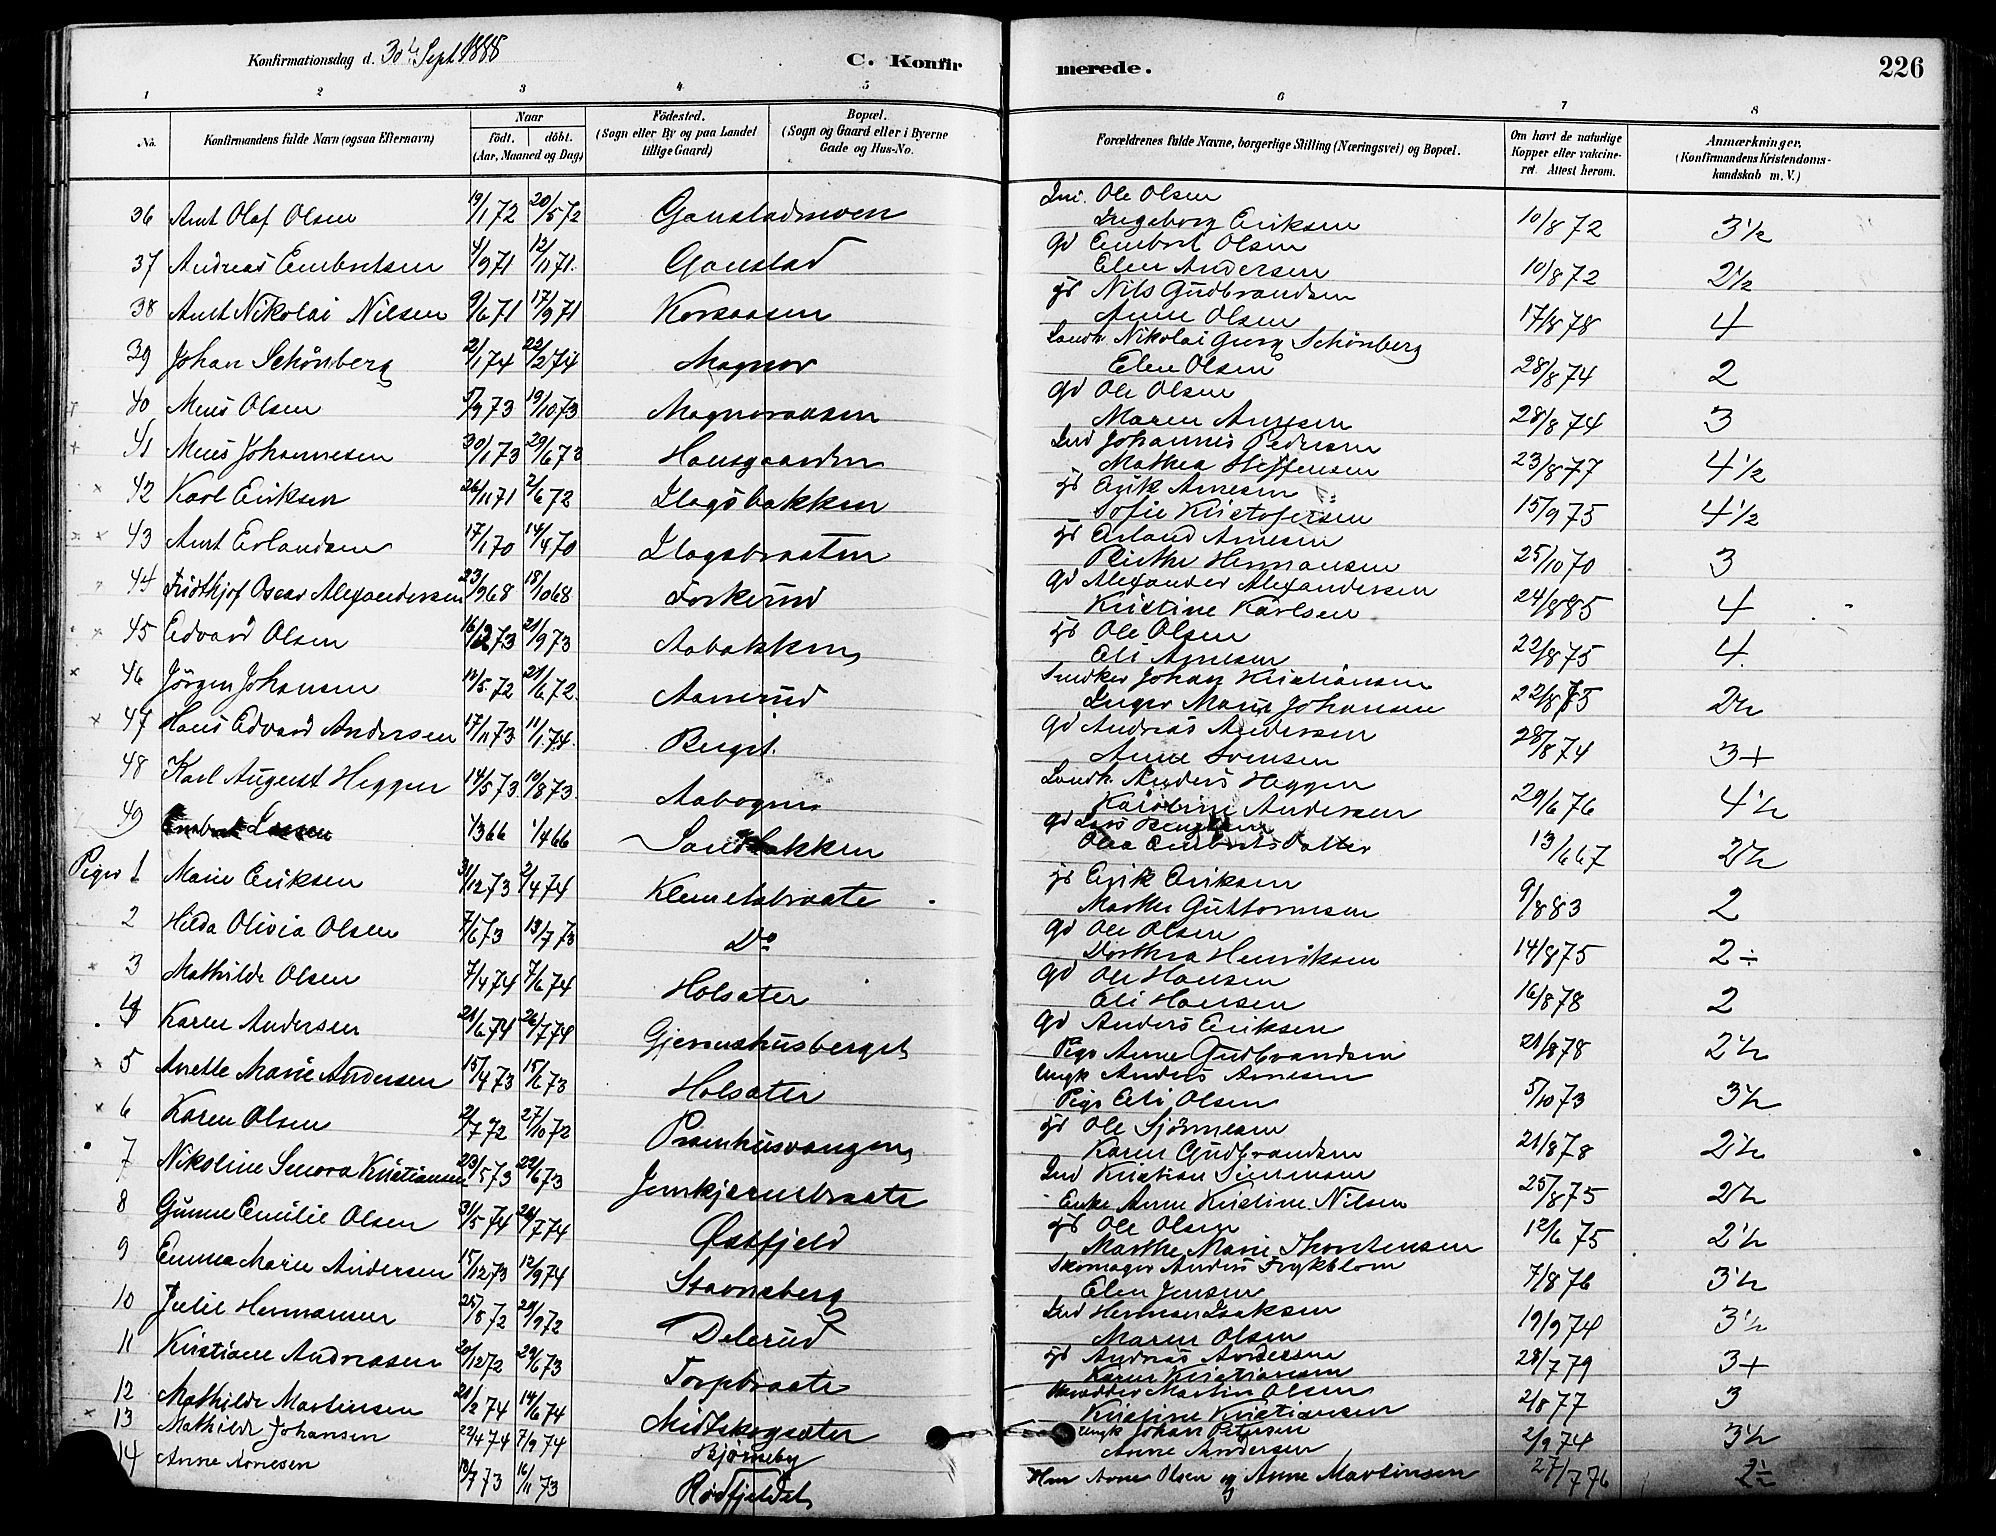 Konfirmationsdag d. 30te Sept 1888
C. Konfirmerede.
226
1 2 3 4 5 6 7 8
No.
Konfirmandens fulde Navn (ogsaa Efternavn)
Naar
födt. döbt.
(Aar, Maaned og Dag)
Födested.
(Sogn eller By og paa Landet tillige Gaard)
Bopæl.
(Sogn og Gaard eller i Byerne Gade og Hus-No.
Forældrenes fulde Navne, borgerlige Stilling (Næringsvei) og Bopæl.
Om havt de naturlige Kopper eller vakcineret. Attest herom.
Anmærkninger.
(Konfirmandens Kristendomskundskab m. V.)
36 Amt Olaf Olsen 19/1 72 20/5 72 Gaustadmoen Ole Olsen Ingeborg Eriksen 10/8 72 3½
37 Andreas Embretsen 4/9 71 12/11 71. Gaustad Gd Embret Olsen Elen Andersen 10/8 72 2½
38 Amt Nikolai Nilsen 9/6 71 17/9 71 Korsaasen Nils Gudbrandsen Anne Olsen 17/8 78 4
39 Johan Schönberg 2/1 74 22/2 74 Magnor Landh. Nikolai Georg Schönberg Elen Olsen 28/8 74 2
40 Meus Olsen 5/9 73 19/10 73 Magnoraasen Gd Ole Olsen Maren 28/8 74 3
41 Meus Johannesen 30/1 73 29/6 73 Hansgaarden Ind Johannes Pedersen Mathea Steffensen 23/8 77 4½
42 Karl Eriksen 26/11 71 2/6 72 Slagsbakken Erik Arnesen Sofie Kristofersen 15/9 75 4½
43 Amt Erlandsen 17/1 70 14/4 70 Slagsbraaten Erland Arnesen Hermansen 25/10 70 3
44 Fridthjof Oscar Alexandersen 23/9 68 18/10 68 Forkerud Gd Alexander Alexandersen Kristine Karlsen 24/8 85 4
45 Edvard Olsen 73 21/9 73 Aabakken Ole Olsen Eli Arnesen 22/8 75 4.
46 Jörgen Johansen 12/5 72 21/6 72. Aanerud Johan Kristiansen Inger Marie Johansen 22/8 75 2½
47 Hans Edvard Andersen 17/11 73 11/1 74. Berget. Gd Andreas Andersen Anne Svensen 28/8 74 3+
48 Karl August Heggen 14/5 73 10/8 73. Aabogen Landh. Anders Heggen Karoline Andersen 29/6 76 4½
49 Embret Larsen 66 1/4 66 Sandbakken Gd Lars Olea Embretsdatter 13/6 67 2½
Piger 1 Marie Eriksen 31/12 73 2/4 74 Klemetsbraate Erik Eriksen Marthe Guttormsen 9/8 83 2
2 Hilda Olivia Olsen 7/6 73 13/7 73 Do Gd Ole Olsen Dorthea Henriksen 14/8 75 2÷
3 Mathilde Olsen 7/4 74 7/6 74 Holsæter Gd Ole Hansen Eli Hansen 16/8 78 2
4 Karen Andersen 21/6 74 26/7 74 Gjermshusberget Gd Anders Eriksen Pige Anne Gudbrandsen 21/8 78 2½
5 Anette Marie Andersen 15/4 73 15/6 73 Holsæter Ungk Anders Arnesen Pige Eli Olsen 5/10 73 3½
6 Karen Olsen 2/7 72 27/10 72 Pramhusvangen Ole Karen Gudbrandsen 21/8 78 2½
7 Nikoline Senora Kristiansen 23/5 73 22/6 73 Jernkjernsbraate Ind Kristian Simensen Enke Anne Kristine Nilsen 25/8 75 2½
8 Gunne Emilie Olsen 31/5 74 26/7 74 Østfjeld Ole Olsen Marthe Marie Thorstensen 12/6 75 2½
9 Emma Marie Andersen 15/12 73 12/9 74 Stavnsberg Skomager Anders Frykblom Elen Jensen 7/8 76 3½
10 Julie Hermansen 25/8 72 29/9 72 Delerud Ind Herman Isaksen Maren Olsen 19/9 74 3½
11 Kristiane Andreasen 20/12 72 29/6 73 Torpbraate Andreas Andersen Karen Kristiansen 28/7 79 3+
12 Mathilde Martinsen 21/2 74 14/6 74 Midtskogsæter Martin Olsen Kristine Kristiansen 2/8 77 3
13 Mathilde Johansen 22/4 74 7/9 74 Bjørneby Ungk Johan Petersen Anne Andersen 2/9 74 3½
14 Anne Arnesen 18/7 73 16/11 73 Rödfjeldet Hm Arne Olsen og Anne Martinsen 27/7 76 2÷